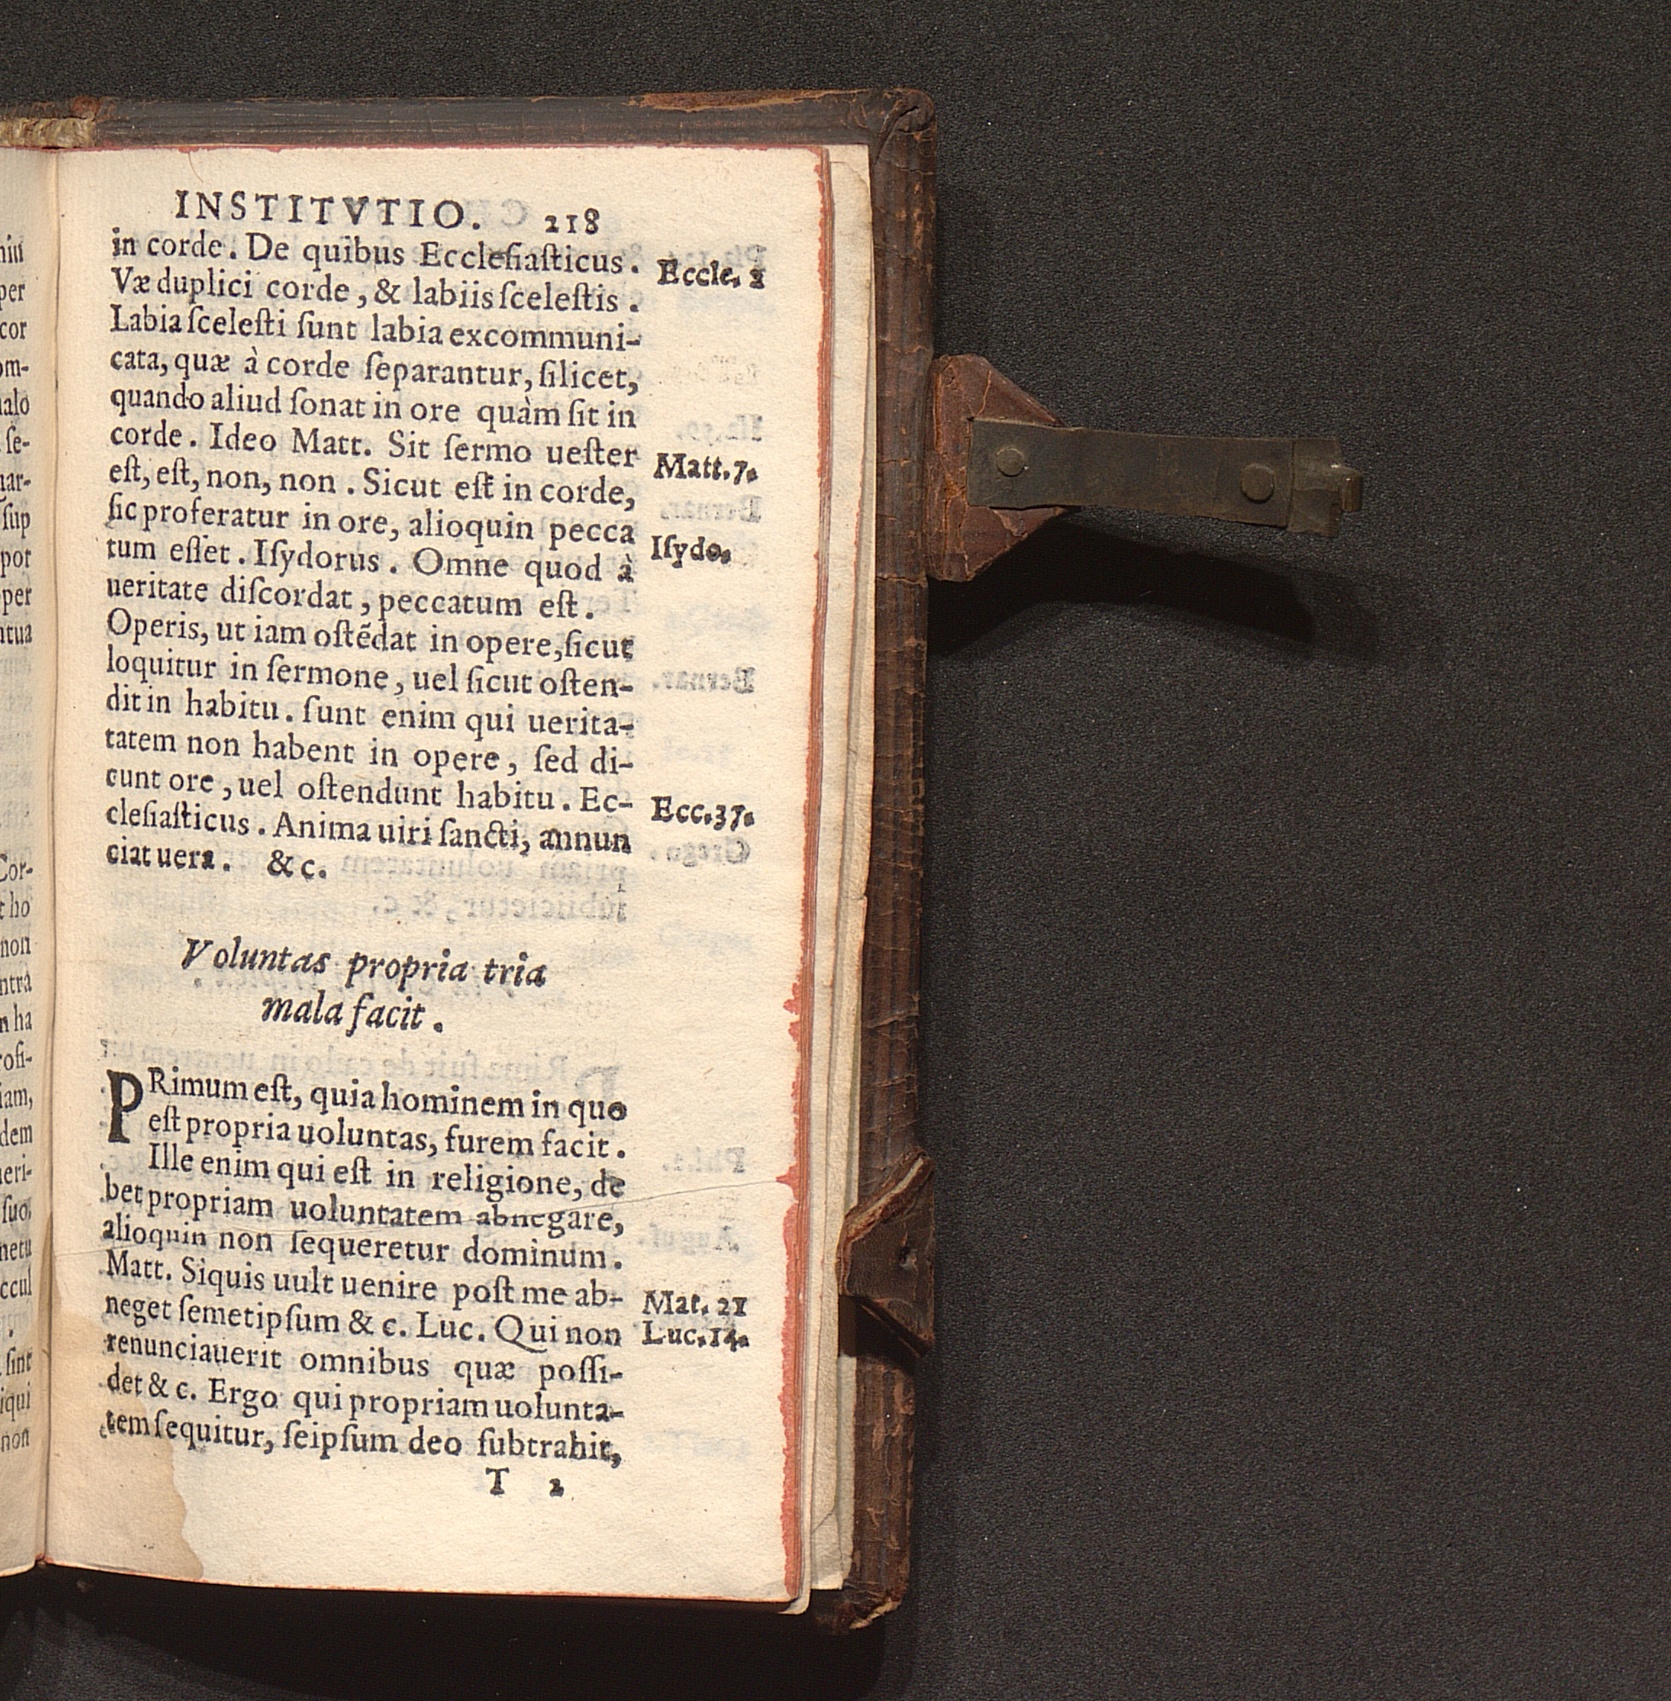 INSTITVTIO. 218
in corde. De quibus Eccleſiaſticus. Eccle. 2
Væ duplici corde, & labiis ſceleſtis.
Labia ſceleſti ſunt labia excommuni-
cata, quæ à corde ſeparantur, ſilicet,
quando aliud ſonat in ore quàm ſit in
corde. Ideo Matt. Sit ſermo ueſter Matt. 7.
eſt, eſt, non, non. Sicut eſt in corde,
ſic proferatur in ore, alioquin pecca
tum eſſet. Iſydorus. Omne quod à Iſydo.
ueritate diſcordat, peccatum eſt.
Operis, ut iam oſtẽdat in opere, ſicut
loquitur in ſermone, uel ſicut oſten-
dit in habitu. ſunt enim qui uerita-
tatem non habent in opere, ſed di-
cunt ore, uel oſtendunt habitu. Ec- Ecc. 37.
cleſiaſticus. Anima uiri ſancti, annun
ciat uera. & c.
Voluntas propria tria
mala facit.
PRimum eſt, quia hominem in quo
eſt propria uoluntas, furem facit.
Ille enim qui eſt in religione, de
bet propriam uoluntatem abnegare,
alioquin non ſequeretur dominum.
Matt. Siquis uult uenire poſt me ab- Mat. 21
neget ſemetipſum & c. Luc. Qui non Luc. 14.
renunciauerit omnibus quæ poſſi-
det & c. Ergo qui propriam uolunta-
tem ſequitur, ſeipſum deo ſubtrahit,
T 2